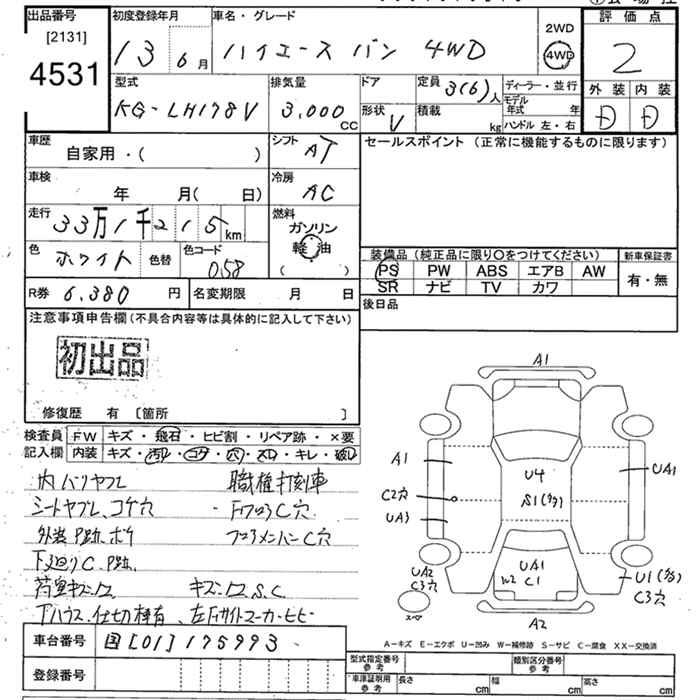 出品番号
[2131]
4531
初度登録年月
13 6月
車名・グレード
ハイエース バン 4WD
2WD
4WD
評価点
2
外装 内装
D D
型式
KG-LH178V
排気量
3,000 CC
ドア
形状 V
定員 3(6)人
積載 kg
ディーラー・並行
モデル年式 年
ハンドル 左・右
車歴
自家用・( )
シフト AT
セールスポイント (正常に機能するものに限ります)
車検
年 月( 日)
冷房 AC
走行
33万1千215km
燃料
ガソリン
軽油
( )
色 ホワイト
色替
色コード 058
装備品 (純正品に限り○をつけてください)
新車保証書
PS PW ABS エアB AW
SR ナビ TV カワ
有・無
R券 6,380 円
名変期限 月 日
後日品
注意事項申告欄(不具合内容等は具体的に記入して下さい)
初出品
修復歴 有 [箇所 ]
検査員記入欄
FW キズ・飛石・ヒビ割・リペア跡・×要
内装 キズ・汚レ・コゲ・穴・スレ・キレ・破レ
内ハリヤブレ 職権打刻車
シートヤブレ、コゲ穴 ・FフロアC穴
外装P跡ボケ フロアメンバーC穴
下廻りC.P跡.
荷室キズ、ワレ キズ、ワレS.C
Tハウス、仕切棒有、左Fサイドマーカーヒビ
車台番号 国[01]175993
登録番号
A1
A1
C2穴
UA3
U4
S1(多)
UA1
UA1
W2 C1
UA2
C3穴
U1(多)
C3穴
スペア
A2
A-キズ E-エクボ U-凹み W-補修跡 S-サビ C-腐食 XX-交換済
型式指定番号 参考
類別区分番号 参考
車庫証明用 参考
長さ cm 幅 cm 高さ cm